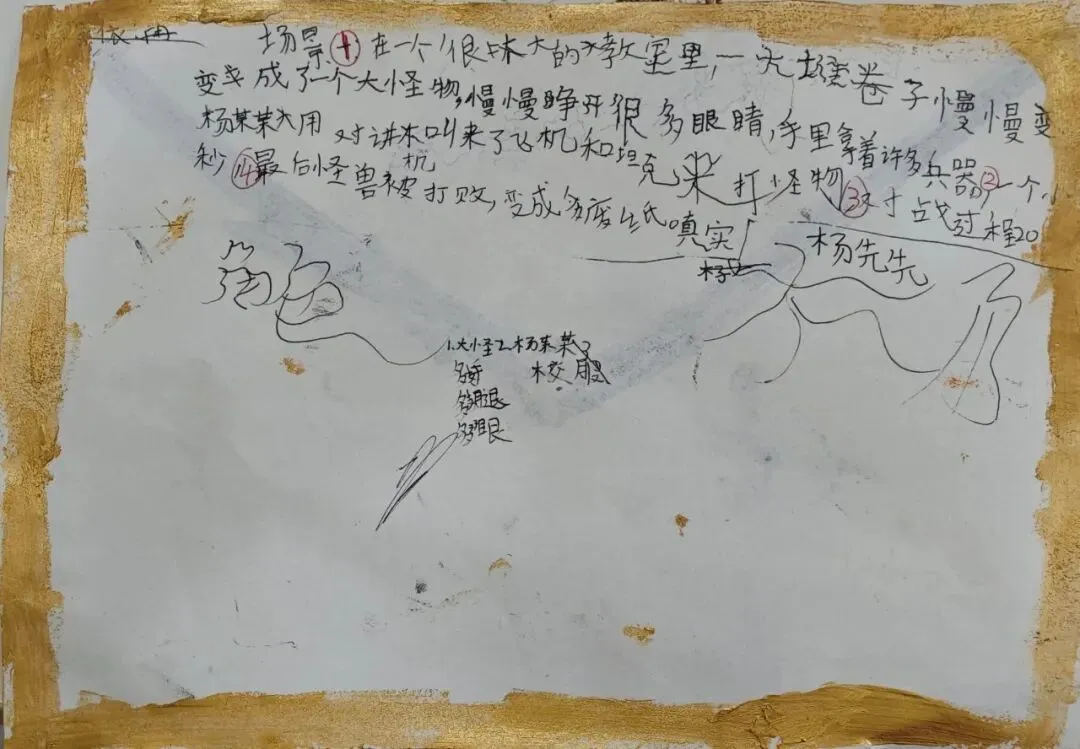 场景①在一个很大的教室里,一大堆卷子慢慢变
变成了一个大怪物,慢慢睁开很多眼睛,手里拿着许多兵器②一个小
杨某某用对讲机叫来了飞机和坦克来打怪物③对战过程20
秒④最后怪兽被打败,变成多废纸。真实
杨先先
角色
1.大怪 2.杨某某
多手 校服
多腿
多眼